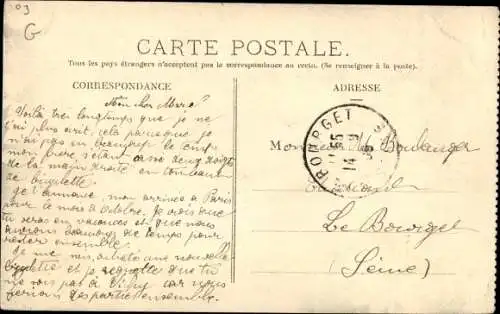 03
G
CARTE POSTALE.
Tous les pays étrangers n'acceptent pas le correspondance au recto. (Se renseigner à la poste).
CORRESPONDANCE
ADRESSE
Mon cher Marcel
Voilà tres longtemps que je ne
t'ai plus écrit, cela parceque je
n'ai pas eu beaucoup le temps
mon père s'étant cassé deux doigts
de la main droite en tombant
de bicyclette
Je t'annonce mon arrivée à Paris
pour le mois d'octobre. Je crois que
tu seras en vacances et que nous
aurons beaucoup de temps pour
ensemble.
Je me suis acheté une nouvelle
bicyclette et je regrette que tu
ne sois pas à car nous
ferions des parties ensemble.
BOURGET
14
Monsieur Boulanger
Le Bourget
(Seine)